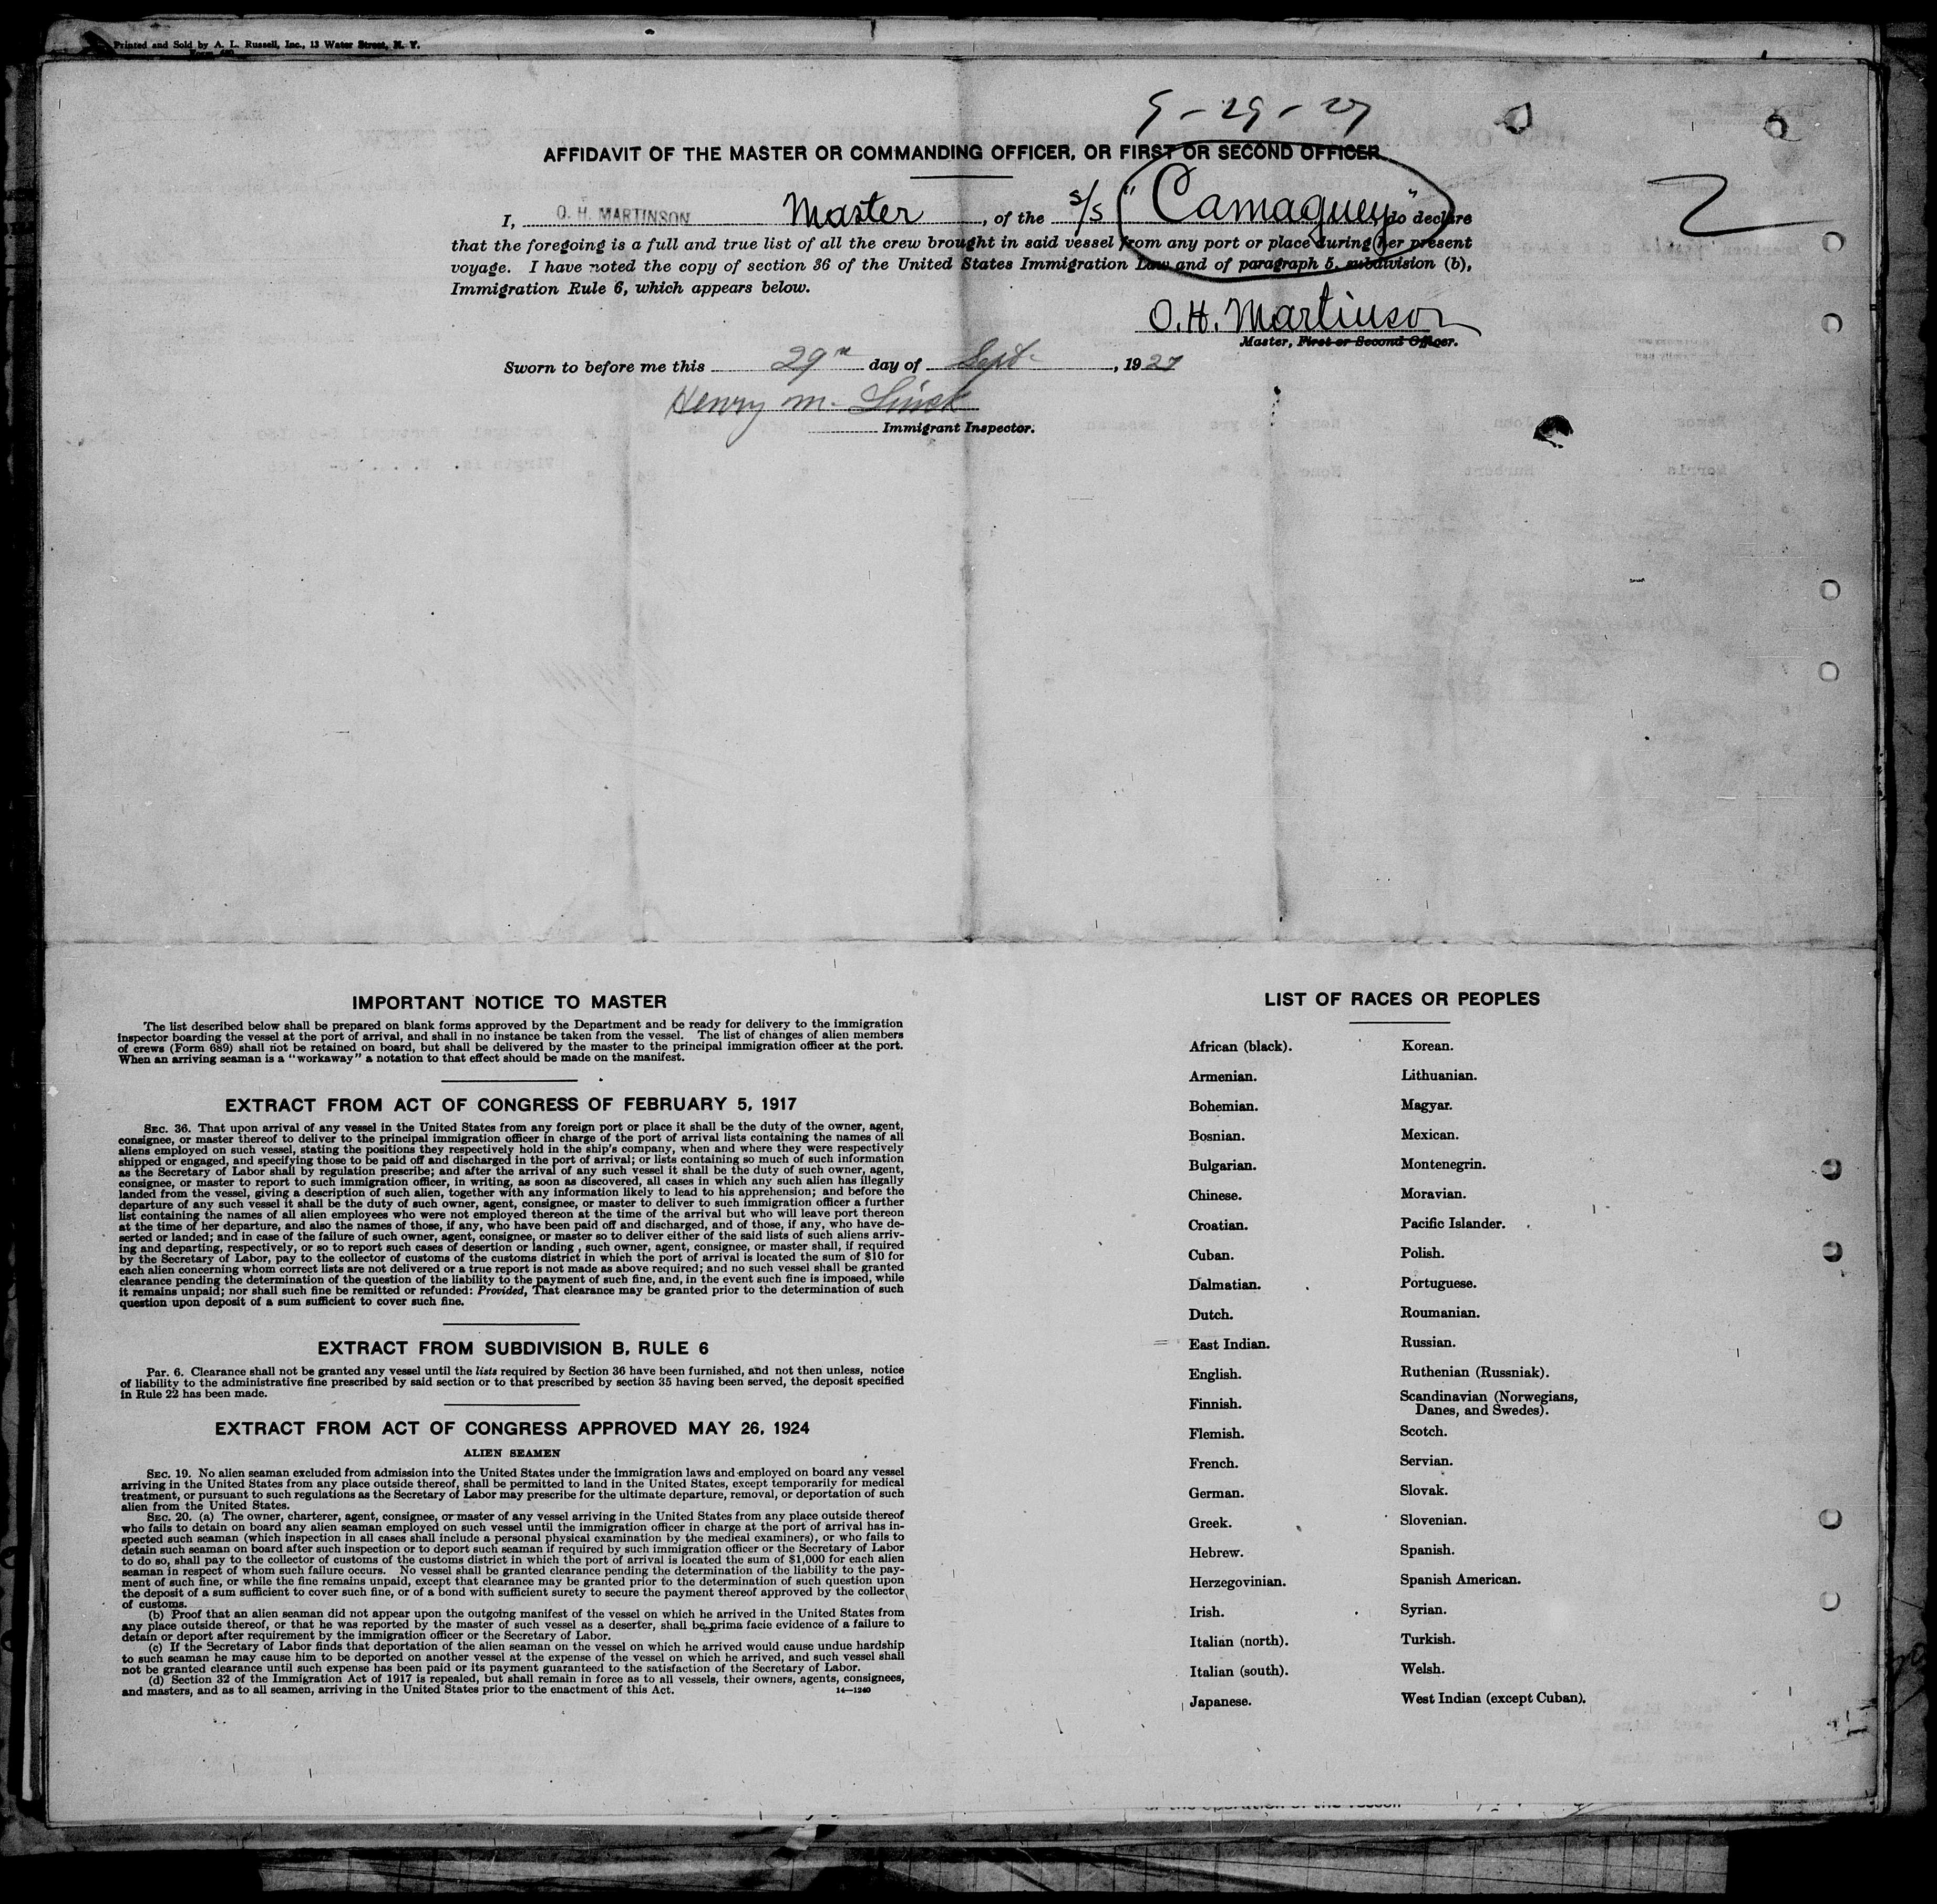 Printed and Sold by A. L. Russell, Inc., 13 Water Street, N. Y.
9-29-27
AFFIDAVIT OF THE MASTER OR COMMANDING OFFICER, OR FIRST OR SECOND OFFICER
I, O. H. MARTINSON Master, of the s/s "Camaguey" do declare
that the foregoing is a full and true list of all the crew brought in said vessel from any port or place during her present
voyage. I have noted the copy of section 36 of the United States Immigration Law and of paragraph 5, subdivision (b),
Immigration Rule 6, which appears below.
O. H. Martinson
Master, First or Second Officer.
Sworn to before me this 29th day of Sept., 1927
Henry M.
Immigrant Inspector.
IMPORTANT NOTICE TO MASTER
The list described below shall be prepared on blank forms approved by the Department and be ready for delivery to the immigration
inspector boarding the vessel at the port of arrival, and shall in no instance be taken from the vessel. The list of changes of alien members
of crews (Form 689) shall not be retained on board, but shall be delivered by the master to the principal immigration officer at the port.
When an arriving seaman is a "workaway" a notation to that effect should be made on the manifest.
EXTRACT FROM ACT OF CONGRESS OF FEBRUARY 5, 1917
SEC. 36. That upon arrival of any vessel in the United States from any foreign port or place it shall be the duty of the owner, agent,
consignee, or master thereof to deliver to the principal immigration officer in charge of the port of arrival lists containing the names of all
aliens employed on such vessel, stating the positions they respectively hold in the ship's company, when and where they were respectively
shipped or engaged, and specifying those to be paid off and discharged in the port of arrival; or lists containing so much of such information
as the Secretary of Labor shall by regulation prescribe; and after the arrival of any such vessel it shall be the duty of such owner, agent,
consignee, or master to report to such immigration officer, in writing, as soon as discovered, all cases in which any such alien has illegally
landed from the vessel, giving a description of such alien, together with any information likely to lead to his apprehension; and before the
departure of any such vessel it shall be the duty of such owner, agent, consignee, or master to deliver to such immigration officer a further
list containing the names of all alien employees who were not employed thereon at the time of the arrival but who will leave port thereon
at the time of her departure, and also the names of those, if any, who have been paid off and discharged, and of those, if any, who have de-
serted or landed; and in case of the failure of such owner, agent, consignee, or master so to deliver either of the said lists of such aliens arriv-
ing and departing, respectively, or so to report such cases of desertion or landing , such owner, agent, consignee, or master shall, if required
by the Secretary of Labor, pay to the collector of customs of the customs district in which the port of arrival is located the sum of $10 for
each alien concerning whom correct lists are not delivered or a true report is not made as above required; and no such vessel shall be granted
clearance pending the determination of the question of the liability to the payment of such fine, and, in the event such fine is imposed, while
it remains unpaid; nor shall such fine be remitted or refunded: Provided, That clearance may be granted prior to the determination of such
question upon deposit of a sum sufficient to cover such fine.
EXTRACT FROM SUBDIVISION B, RULE 6
Par. 6. Clearance shall not be granted any vessel until the lists required by Section 36 have been furnished, and not then unless, notice
of liability to the administrative fine prescribed by said section or to that prescribed by section 35 having been served, the deposit specified
in Rule 22 has been made.
EXTRACT FROM ACT OF CONGRESS APPROVED MAY 26, 1924
ALIEN SEAMEN
SEC. 19. No alien seaman excluded from admission into the United States under the immigration laws and employed on board any vessel
arriving in the United States from any place outside thereof, shall be permitted to land in the United States, except temporarily for medical
treatment, or pursuant to such regulations as the Secretary of Labor may prescribe for the ultimate departure, removal, or deportation of such
alien from the United States.
SEC. 20. (a) The owner, charterer, agent, consignee, or master of any vessel arriving in the United States from any place outside thereof
who fails to detain on board any alien seaman employed on such vessel until the immigration officer in charge at the port of arrival has in-
spected such seaman (which inspection in all cases shall include a personal physical examination by the medical examiners), or who fails to
detain such seaman on board after such inspection or to deport such seaman if required by such immigration officer or the Secretary of Labor
to do so, shall pay to the collector of customs of the customs district in which the port of arrival is located the sum of $1,000 for each alien
seaman in respect of whom such failure occurs. No vessel shall be granted clearance pending the determination of the liability to the pay-
ment of such fine, or while the fine remains unpaid, except that clearance may be granted prior to the determination of such question upon
the deposit of a sum sufficient to cover such fine, or of a bond with sufficient surety to secure the payment thereof approved by the collector
of customs.
(b) Proof that an alien seaman did not appear upon the outgoing manifest of the vessel on which he arrived in the United States from
any place outside thereof, or that he was reported by the master of such vessel as a deserter, shall be prima facie evidence of a failure to
detain or deport after requirement by the immigration officer or the Secretary of Labor.
(c) If the Secretary of Labor finds that deportation of the alien seaman on the vessel on which he arrived would cause undue hardship
to such seaman he may cause him to be deported on another vessel at the expense of the vessel on which he arrived, and such vessel shall
not be granted clearance until such expense has been paid or its payment guaranteed to the satisfaction of the Secretary of Labor.
(d) Section 32 of the Immigration Act of 1917 is repealed, but shall remain in force as to all vessels, their owners, agents, consignees,
and masters, and as to all seamen, arriving in the United States prior to the enactment of this Act.
14—1240
LIST OF RACES OR PEOPLES
African (black).
Armenian.
Bohemian.
Bosnian.
Bulgarian.
Chinese.
Croatian.
Cuban.
Dalmatian.
Dutch.
East Indian.
English.
Finnish.
Flemish.
French.
German.
Greek.
Hebrew.
Herzegovinian.
Irish.
Italian (north).
Italian (south).
Japanese.
Korean.
Lithuanian.
Magyar.
Mexican.
Montenegrin.
Moravian.
Pacific Islander.
Polish.
Portuguese.
Roumanian.
Russian.
Ruthenian (Russniak).
Scandinavian (Norwegians,
Danes, and Swedes).
Scotch.
Servian.
Slovak.
Slovenian.
Spanish.
Spanish American.
Syrian.
Turkish.
Welsh.
West Indian (except Cuban).